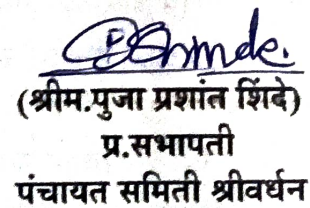 (श्रीम.पुजा प्रशांत शिंदे)
प्र.सभापती
पंचायत समिती श्रीवर्धन